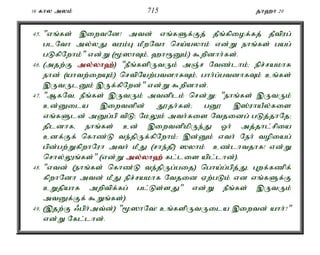 16 கால அலம் 715 தாஹா 20
45. "எங்கள் இறைவனே! அவன் எங்களுக்குத் தீங்கிழைக்கத் தீவிரப்
படவோ அல்லது வரம்பு மீறவோ செய்யலாம் என்று நாங்கள் பயப்
படுகிறோம்" என்று (மூஸாவும், ஹாரூனும்) கூறினார்கள்.
46. (அதற்கு அல்லாஹ்) "நீங்களிருவரும் அஞ்ச வேண்டாம்; நிச்சயமாக
நான் (யாவற்றையும்) செவியேற்பவனாகவும், பார்ப்பவனாகவும் உங்கள்
இருவருடனும் இருக்கிறேன்" என்று கூறினான்.
47. "ஆகவே, நீங்கள் இருவரும் அவனிடம் சென்று: "நாங்கள் இருவரும்
உன்னுடைய இறைவனின் தூதர்கள்; பனூ இஸ்ராயீல்களை
எங்களுடன் அனுப்பி விடு; மேலும் அவர்களை வேதனைப் படுத்தாதே;
திடனாக, நாங்கள் உன் இறைவனிமிருந்து ஓர் அத்தாட்சியை
உனக்குக் கொண்டு வந்திருக்கிறோம்; இன்னும் எவர் நேர் வழியைப்
பின்பற்றுகிறாரோ அவர் மீது (சாந்தி) ஸலாம் உண்டாவதாக! என்று
சொல்லுங்கள்" (என்று அல்லாஹ் கட்டளை யிட்டான்).
48. "எவன் (நாங்கள் கொண்டு வந்திருப்பதை) பொய்ப்பித்து, புறக்கணிக்
கிறானோ அவன் மீது நிச்சயமாக வேதனை ஏற்படும் என எங்களுக்கு
உறுதியாக அறிவிக்கப் பட்டுள்ளது" என்று நீங்கள் இருவரும்
அவனுக்குக் கூறுங்கள்).
49. (இதற்கு ஃபிர்அவ்ன்) "மூஸாவே! உங்களிருவருடைய இறைவன் யார்?"
என்று கேட்டான்.